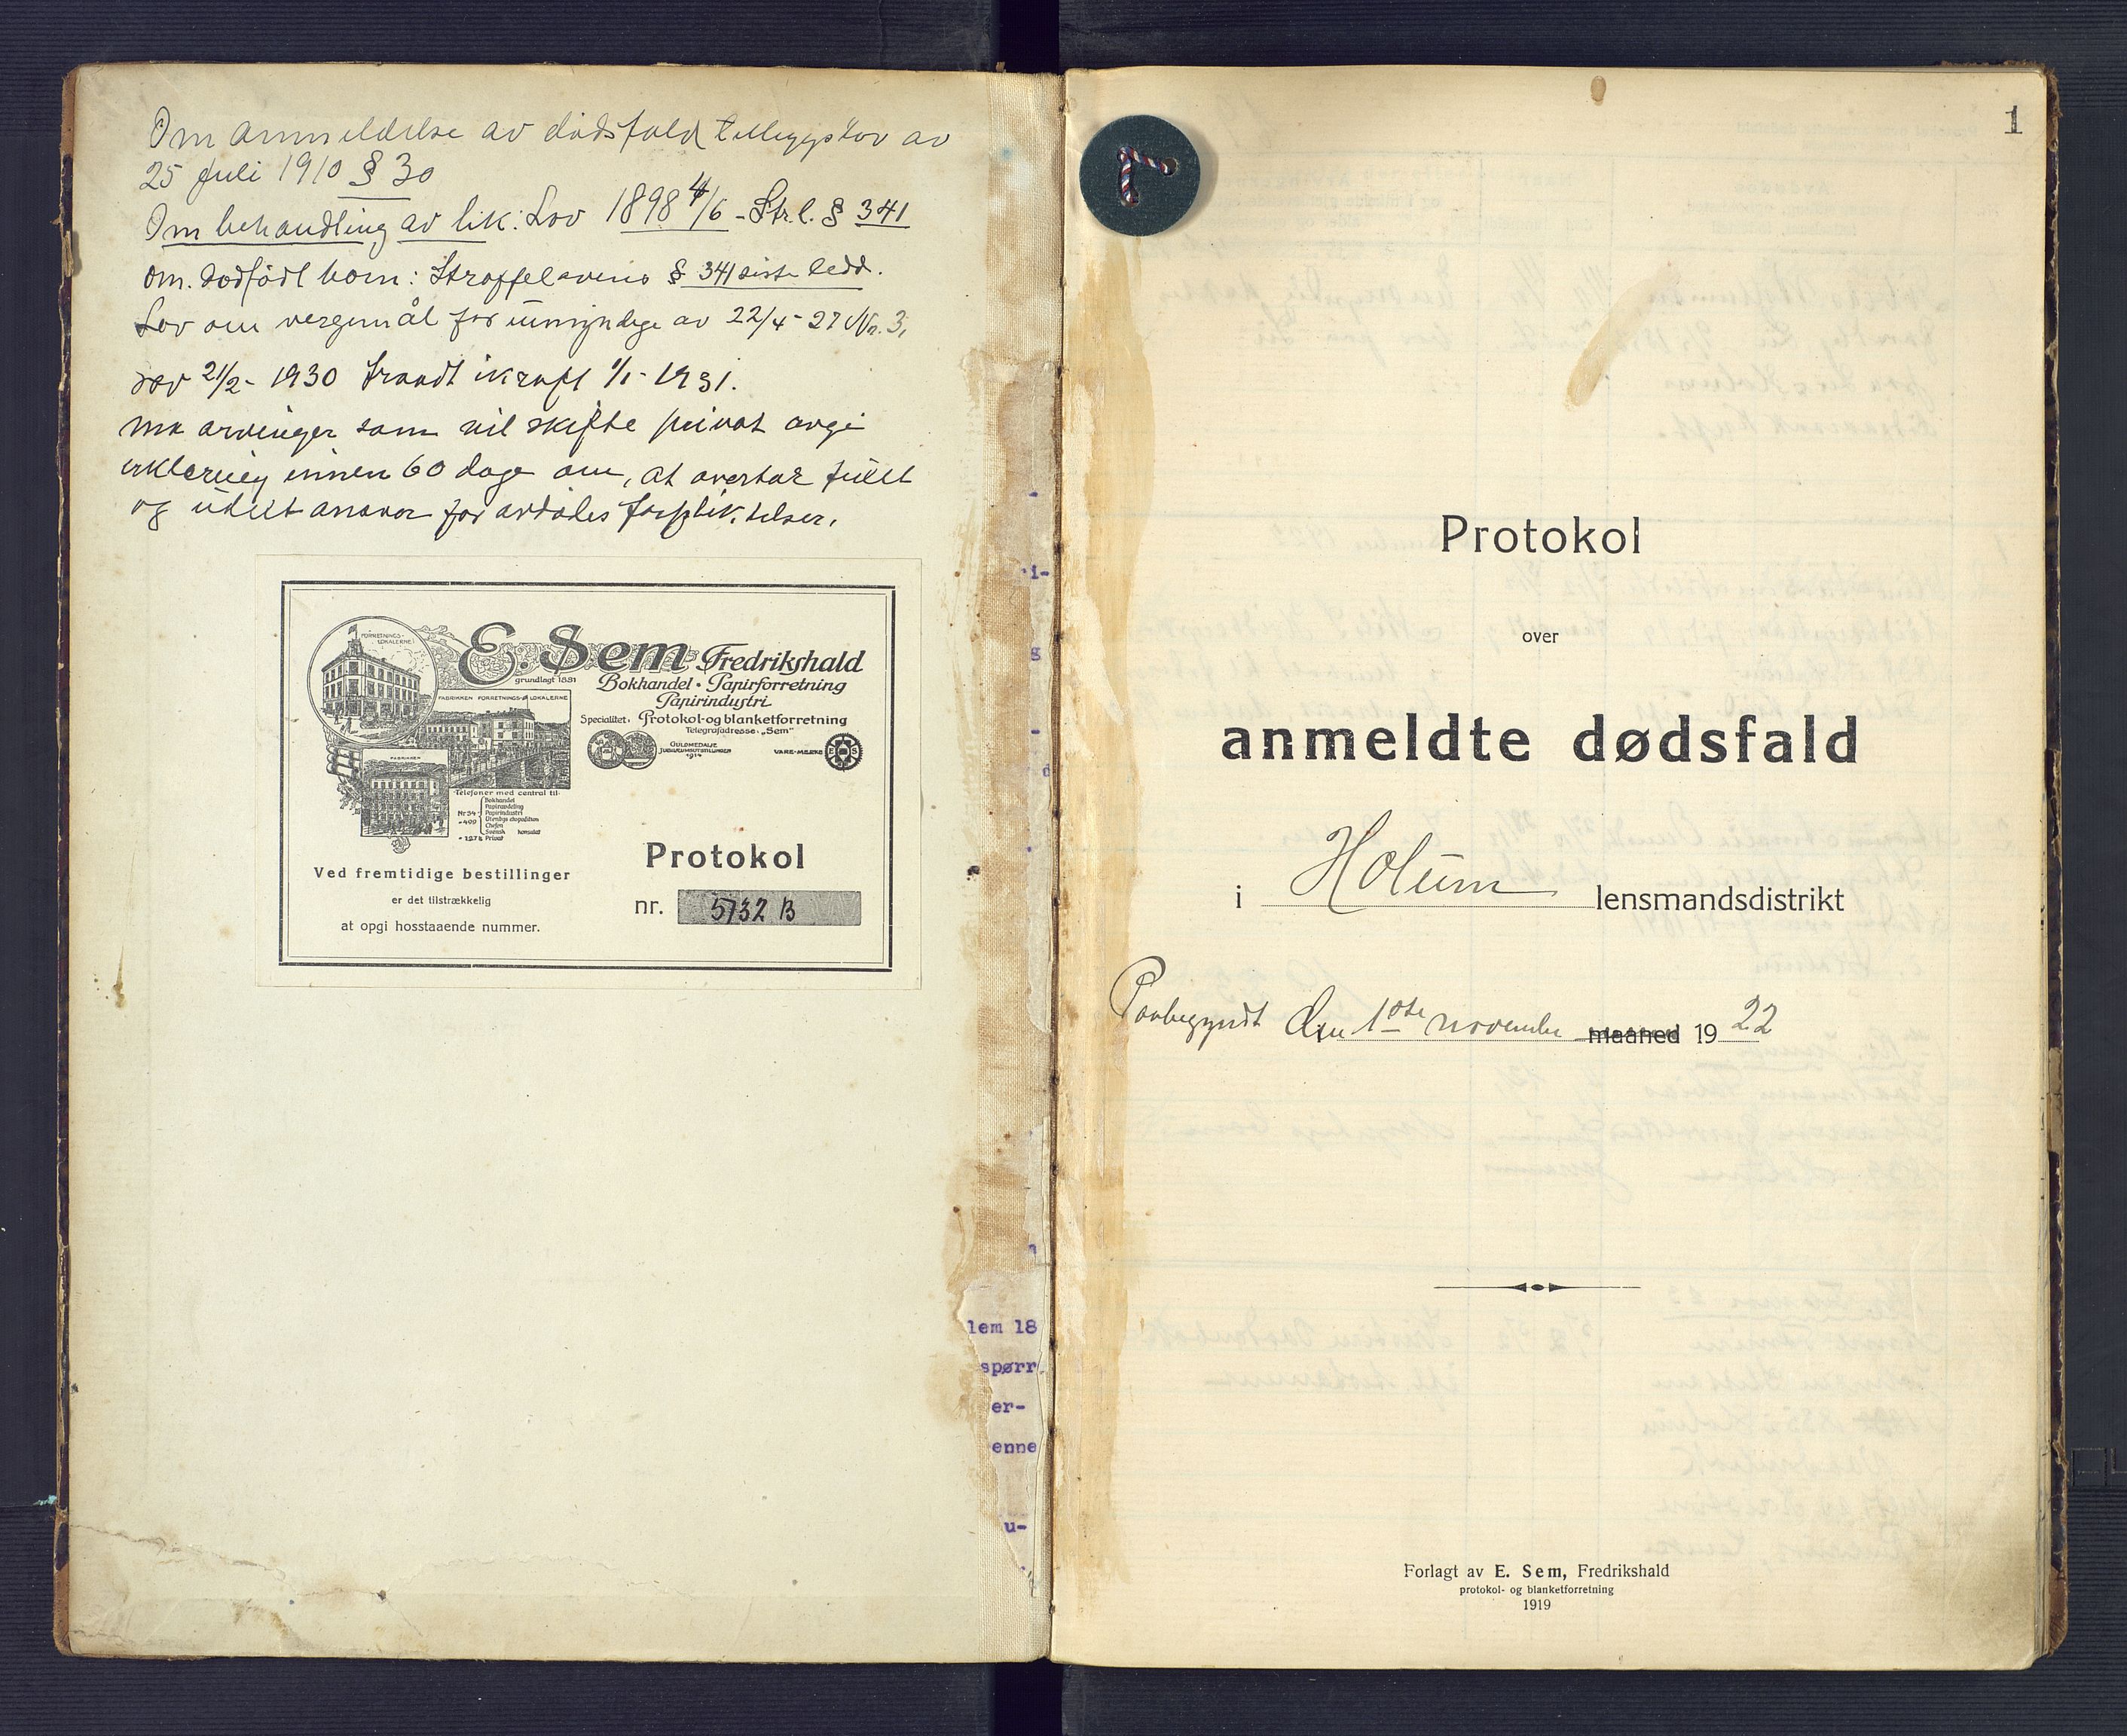 Om anmeldelse av dødsfald tilleggslov av
25 juli 1910 § 30
Om behandling av lik: Lov 1898 4/6 - Str.l. § 341
om. dødfødt barn: Straffelovens § 341 siste ledd.
Lov om vergemål for umyndige av 22/4 - 27 Nr. 3,
21/2 - 1930 traadt ikraft 1/1 - 1931.
må arvinger som vil skifte privat avgi
erklæring innen 60 dage om, at overtar fullt
og udelt ansvar for avdødes forpliktelser.
FORRETNINGS-
LOKALERNE
E. Sem Fredrikshald
grundlagt 1881
Bokhandel • Papirforretning
Papirindustri
FABRIKKEN FORRETNINGS-LOKALERNE
Specialitet. Protokol- og blanketforretning
Telegrafadresse. „Sem“
GULDMEDALJE
JUBILÆUMSUTSTILLINGEN
1914
VARE-MERKE
E S
FABRIKKEN
Telefoner med central til.
Nr 54
Bokhandel
Papiravdeling
Papirindustri
Utenbys ekspedition
Chefen
Svensk konsulat
Privat
Protokol
Ved fremtidige bestillinger
er det tilstrækkelig
at opgi hosstaaende nummer.
nr. 5732 B
lem 18
spørr
er-
enne
u-
1
Protokol
over
anmeldte dødsfald
i Holum lensmandsdistrikt
Paabegyndt den 1ste november maaned 1922
Forlagt av E. Sem, Fredrikshald
protokol- og blanketforretning
1919